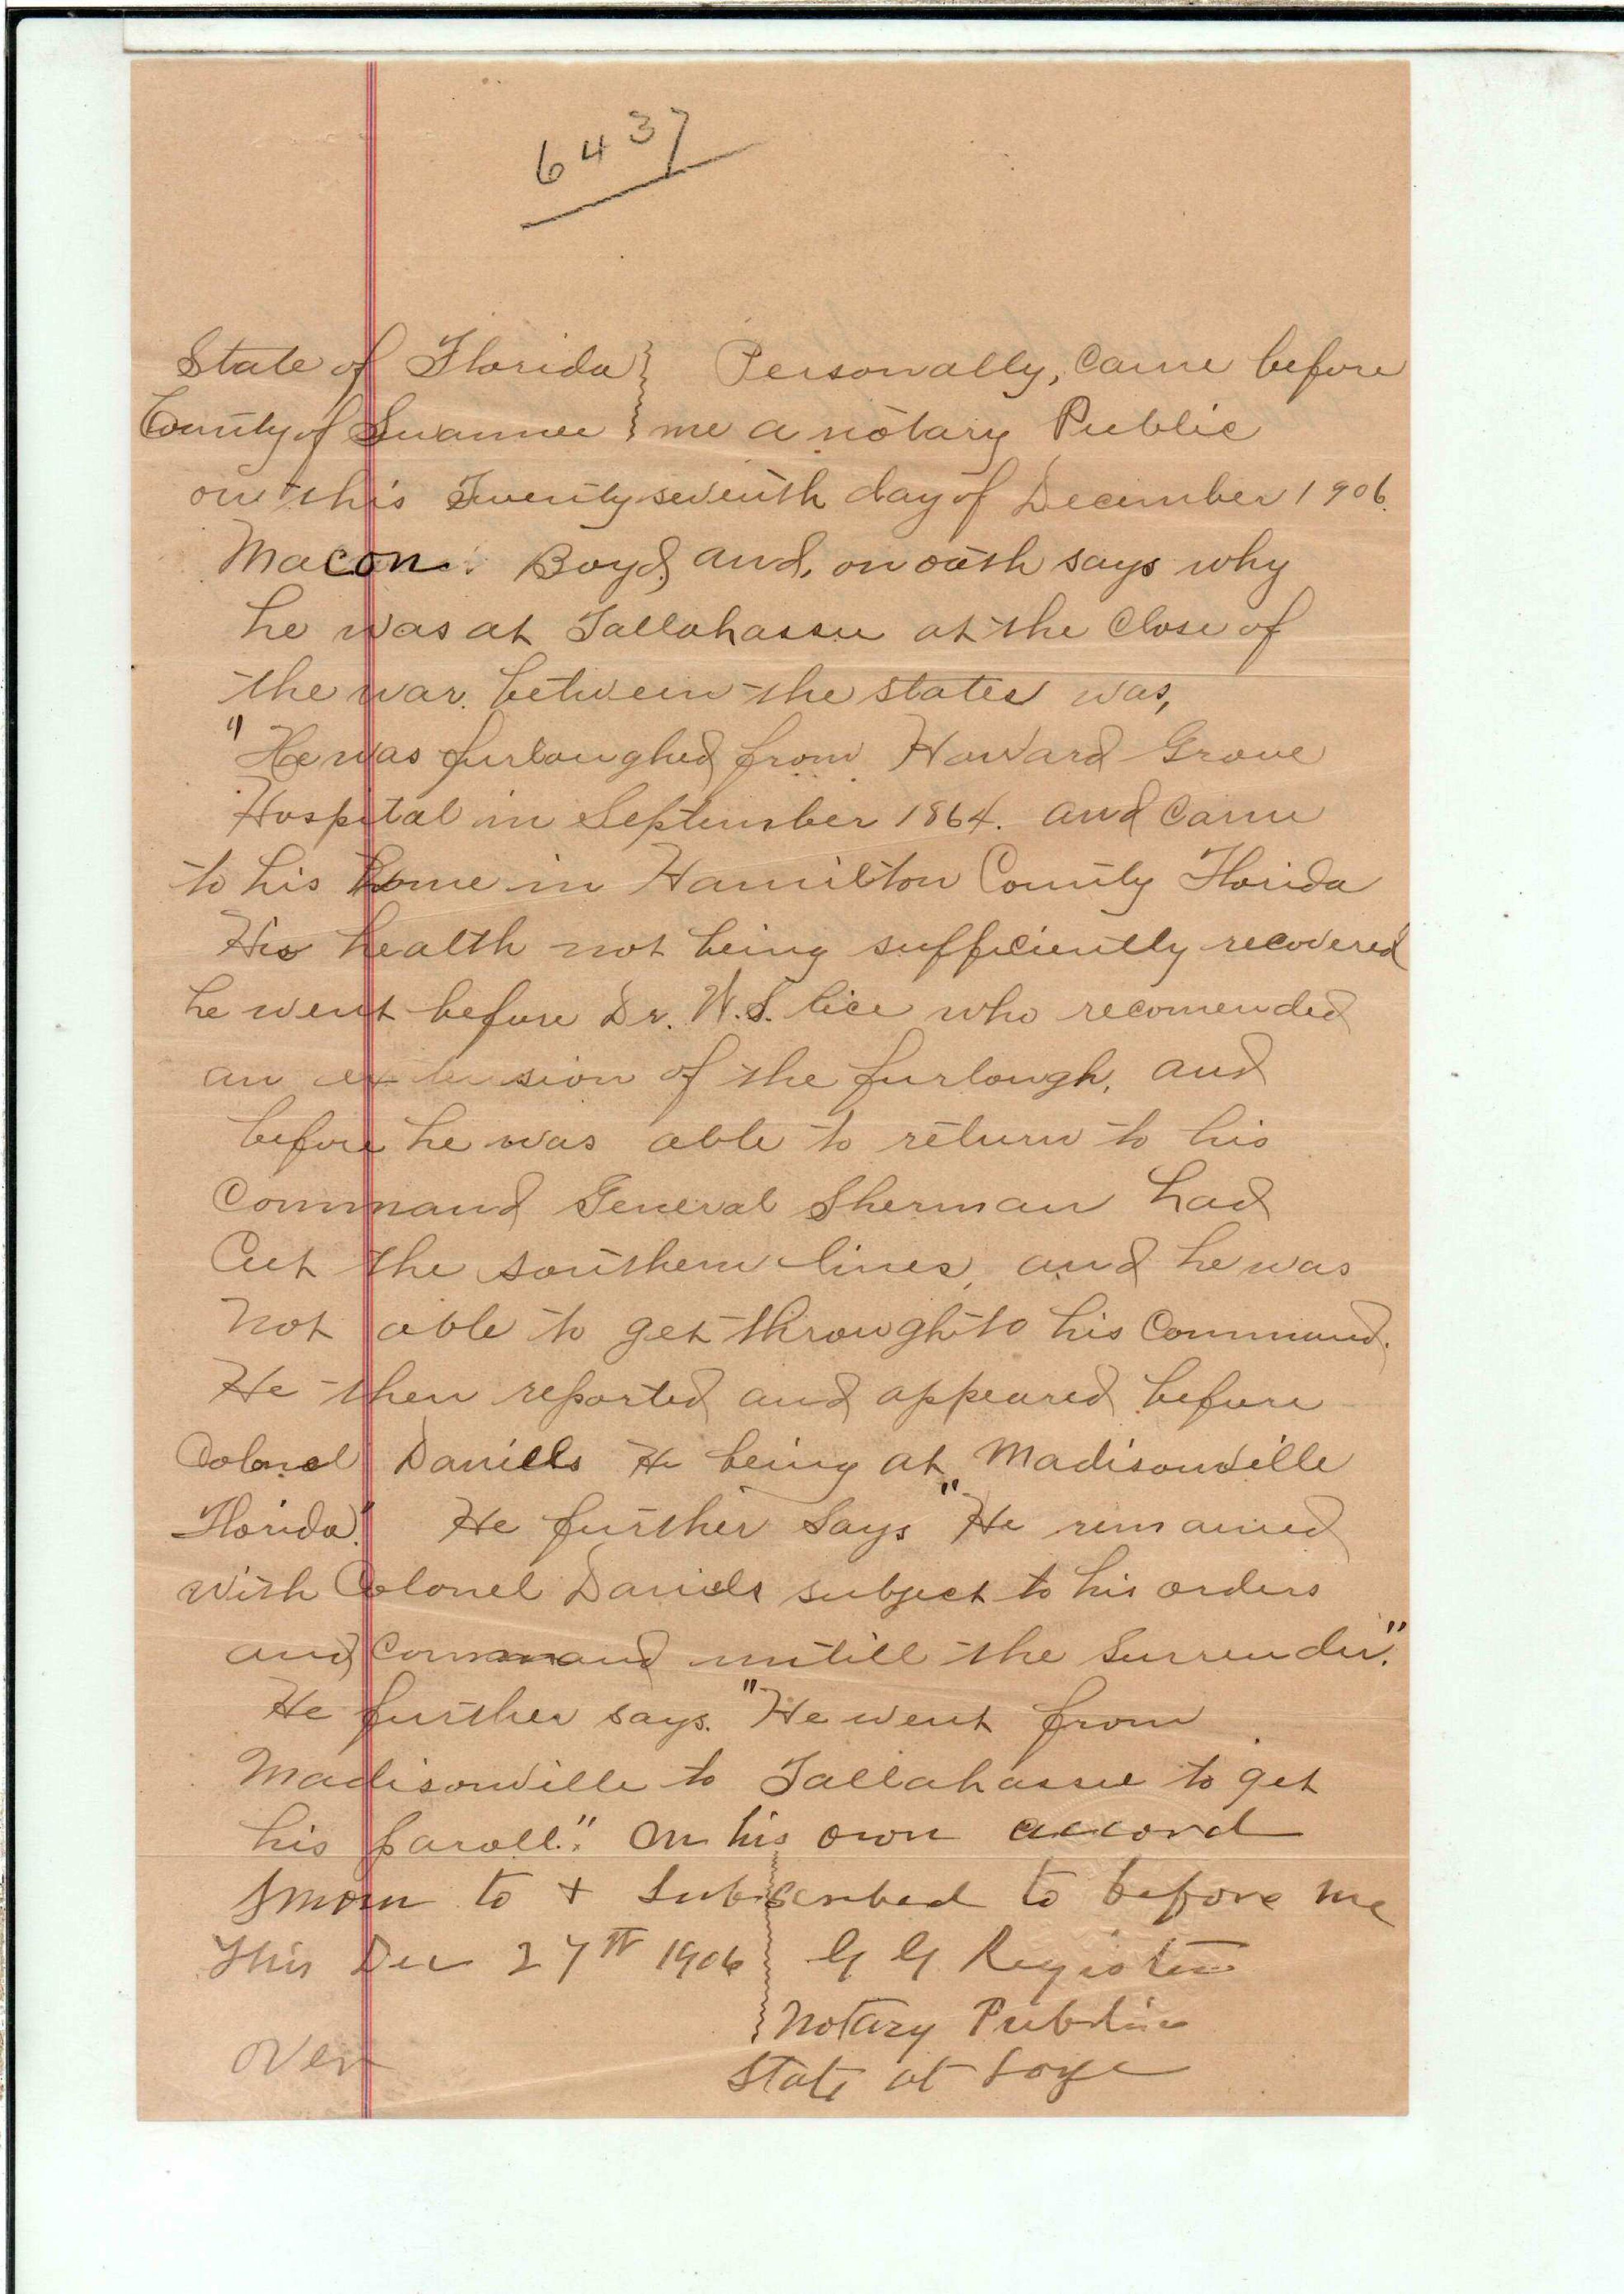 6437
State of Florida } Personally, Came before
County of Suwannee } me a notary Public
on this Twenty seventh day of December 1906.
Macon Boyd, and, on oath says why
he was at Tallahassee at the Close of
the war. between the states was,
"He was furloughed from Howard Grove
Hospital in September 1864. and Came
to his home in Hamilton County Florida
His health not being sufficiently recovered
he went before Dr. W.S. who recomended
an extension of the furlough, and
before he was able to return to his
Command General Sherman had
Cut the southern lines, and he was
not able to get through to his Command.
He then reported and appeared before
Colonel Daniels He being at Madisonville
Florida." He further Says "He remained
with Colonel Daniels subject to his orders
and Command untill the Surrender."
He further says. "He went from
Madisonville to Tallahassee to get
his paroll." On his own accord
Sworn to + Subscribed to before me
This Dec 27th 1906 } G G Register
Notary Public
State at Large
Over